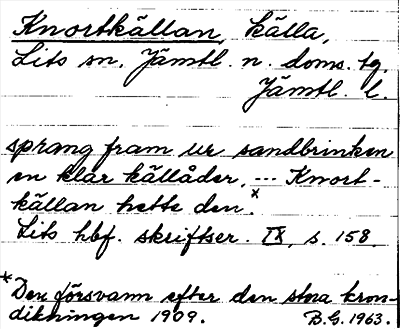 Knortkällan, källa,
Lits sn, Jämtl. n. doms. tg.
Jämtl. l.
sprang fram ur sandbrinken
en klar källåder, --- Knort-
källan hette den.*
Lits hbf. skriftser. IX, s. 158.
*Den försvann efter den stora kron-
dikningen 1909. B.G. 1963.